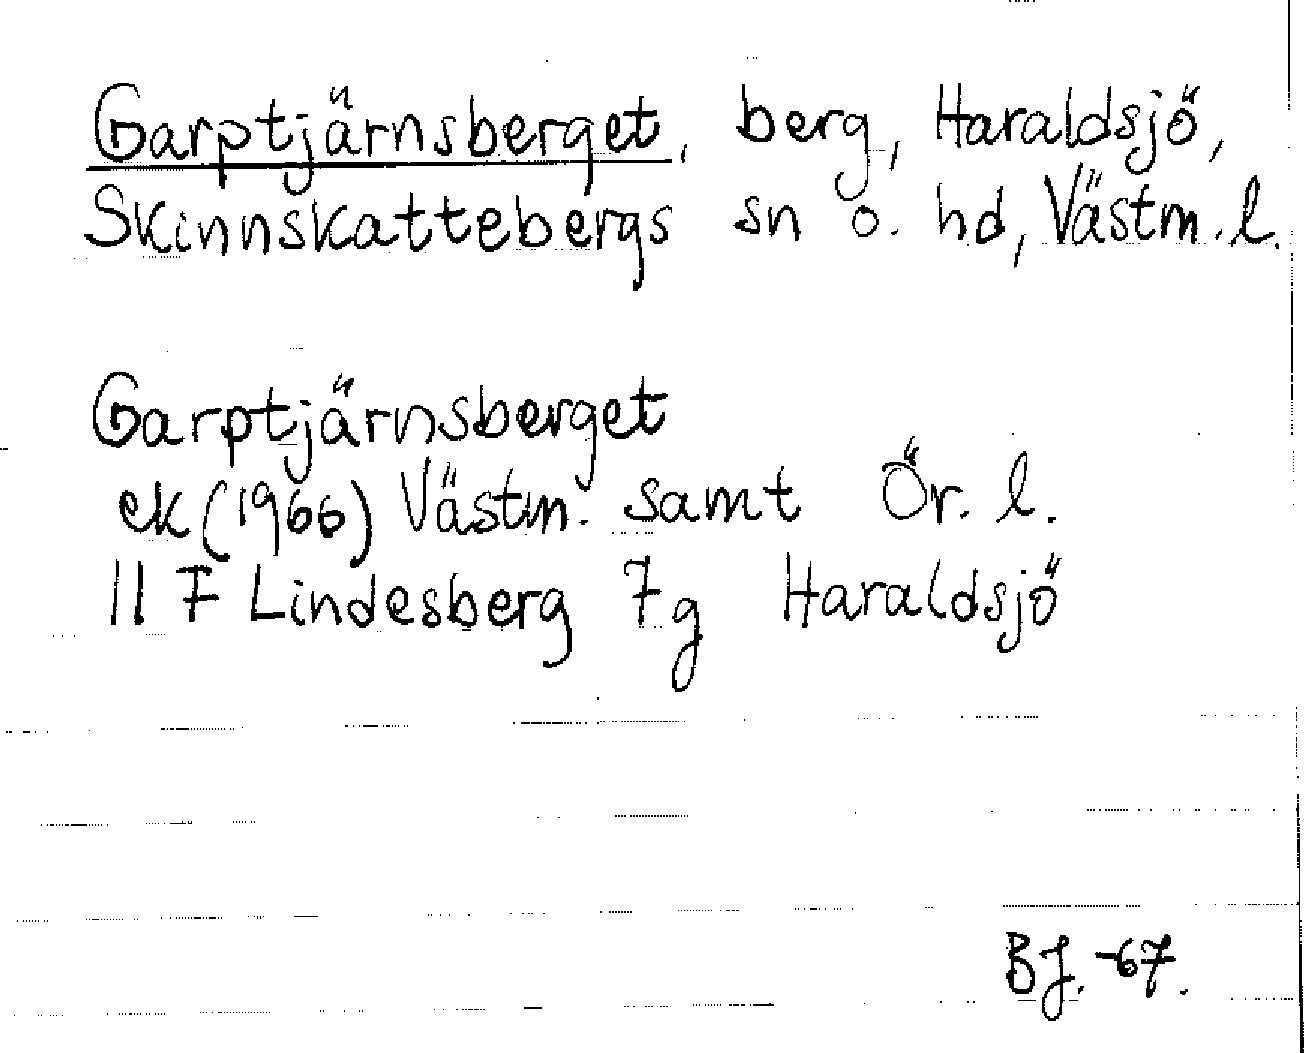 Garptjärnsberget, berg, Haraldsjö,
Skinnskattebergs sn o. hd, Västm. l.
Garptjärnsberget
ek (1966) Västm. samt Ör. l.
11 F Lindesberg 7g Haraldsjö
BJ. -67.